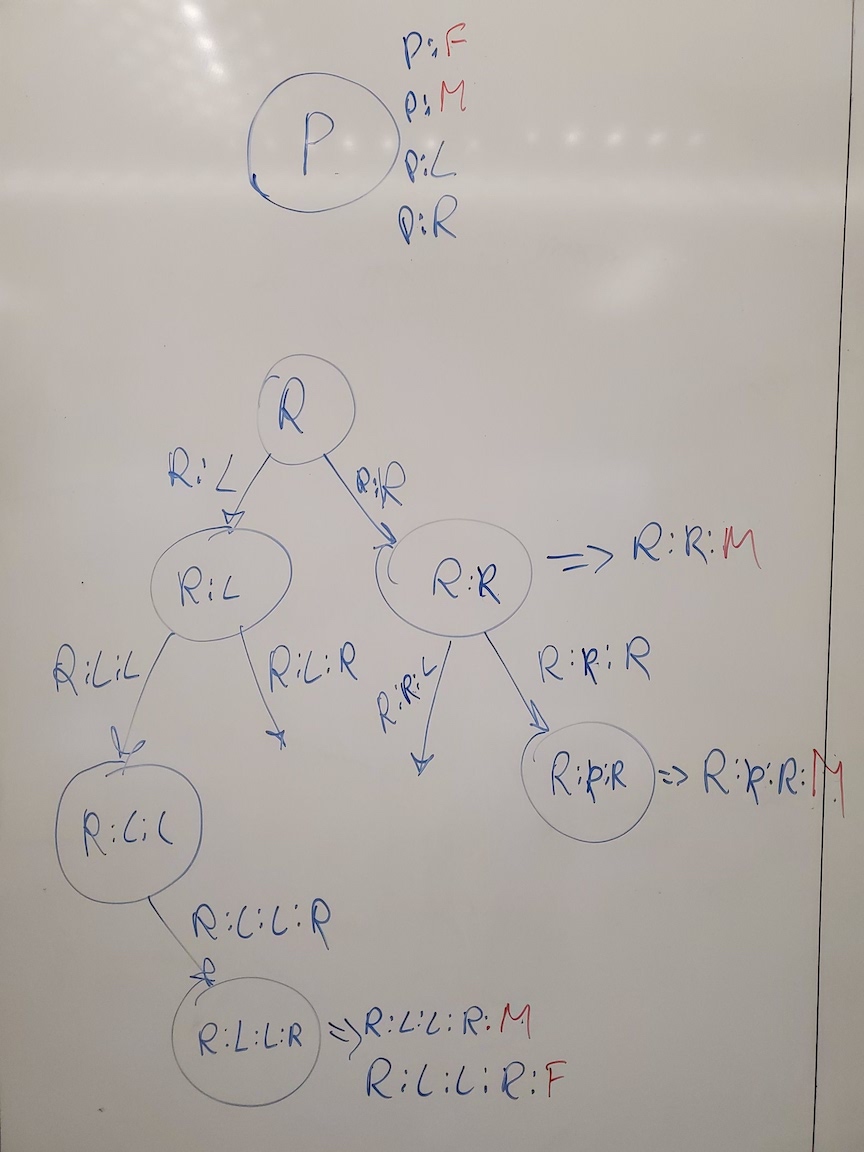 P:F
P:M
P
P:L
P:R
R
R:L
R:R
R:L
R:R
R:R:M
R:L:L
R:L:R
R:R:L
R:R:R
R:L:L
R:R:R
R:R:R:M
R:L:L:R
R:L:L:R
R:L:L:R:M
R:L:L:R:F